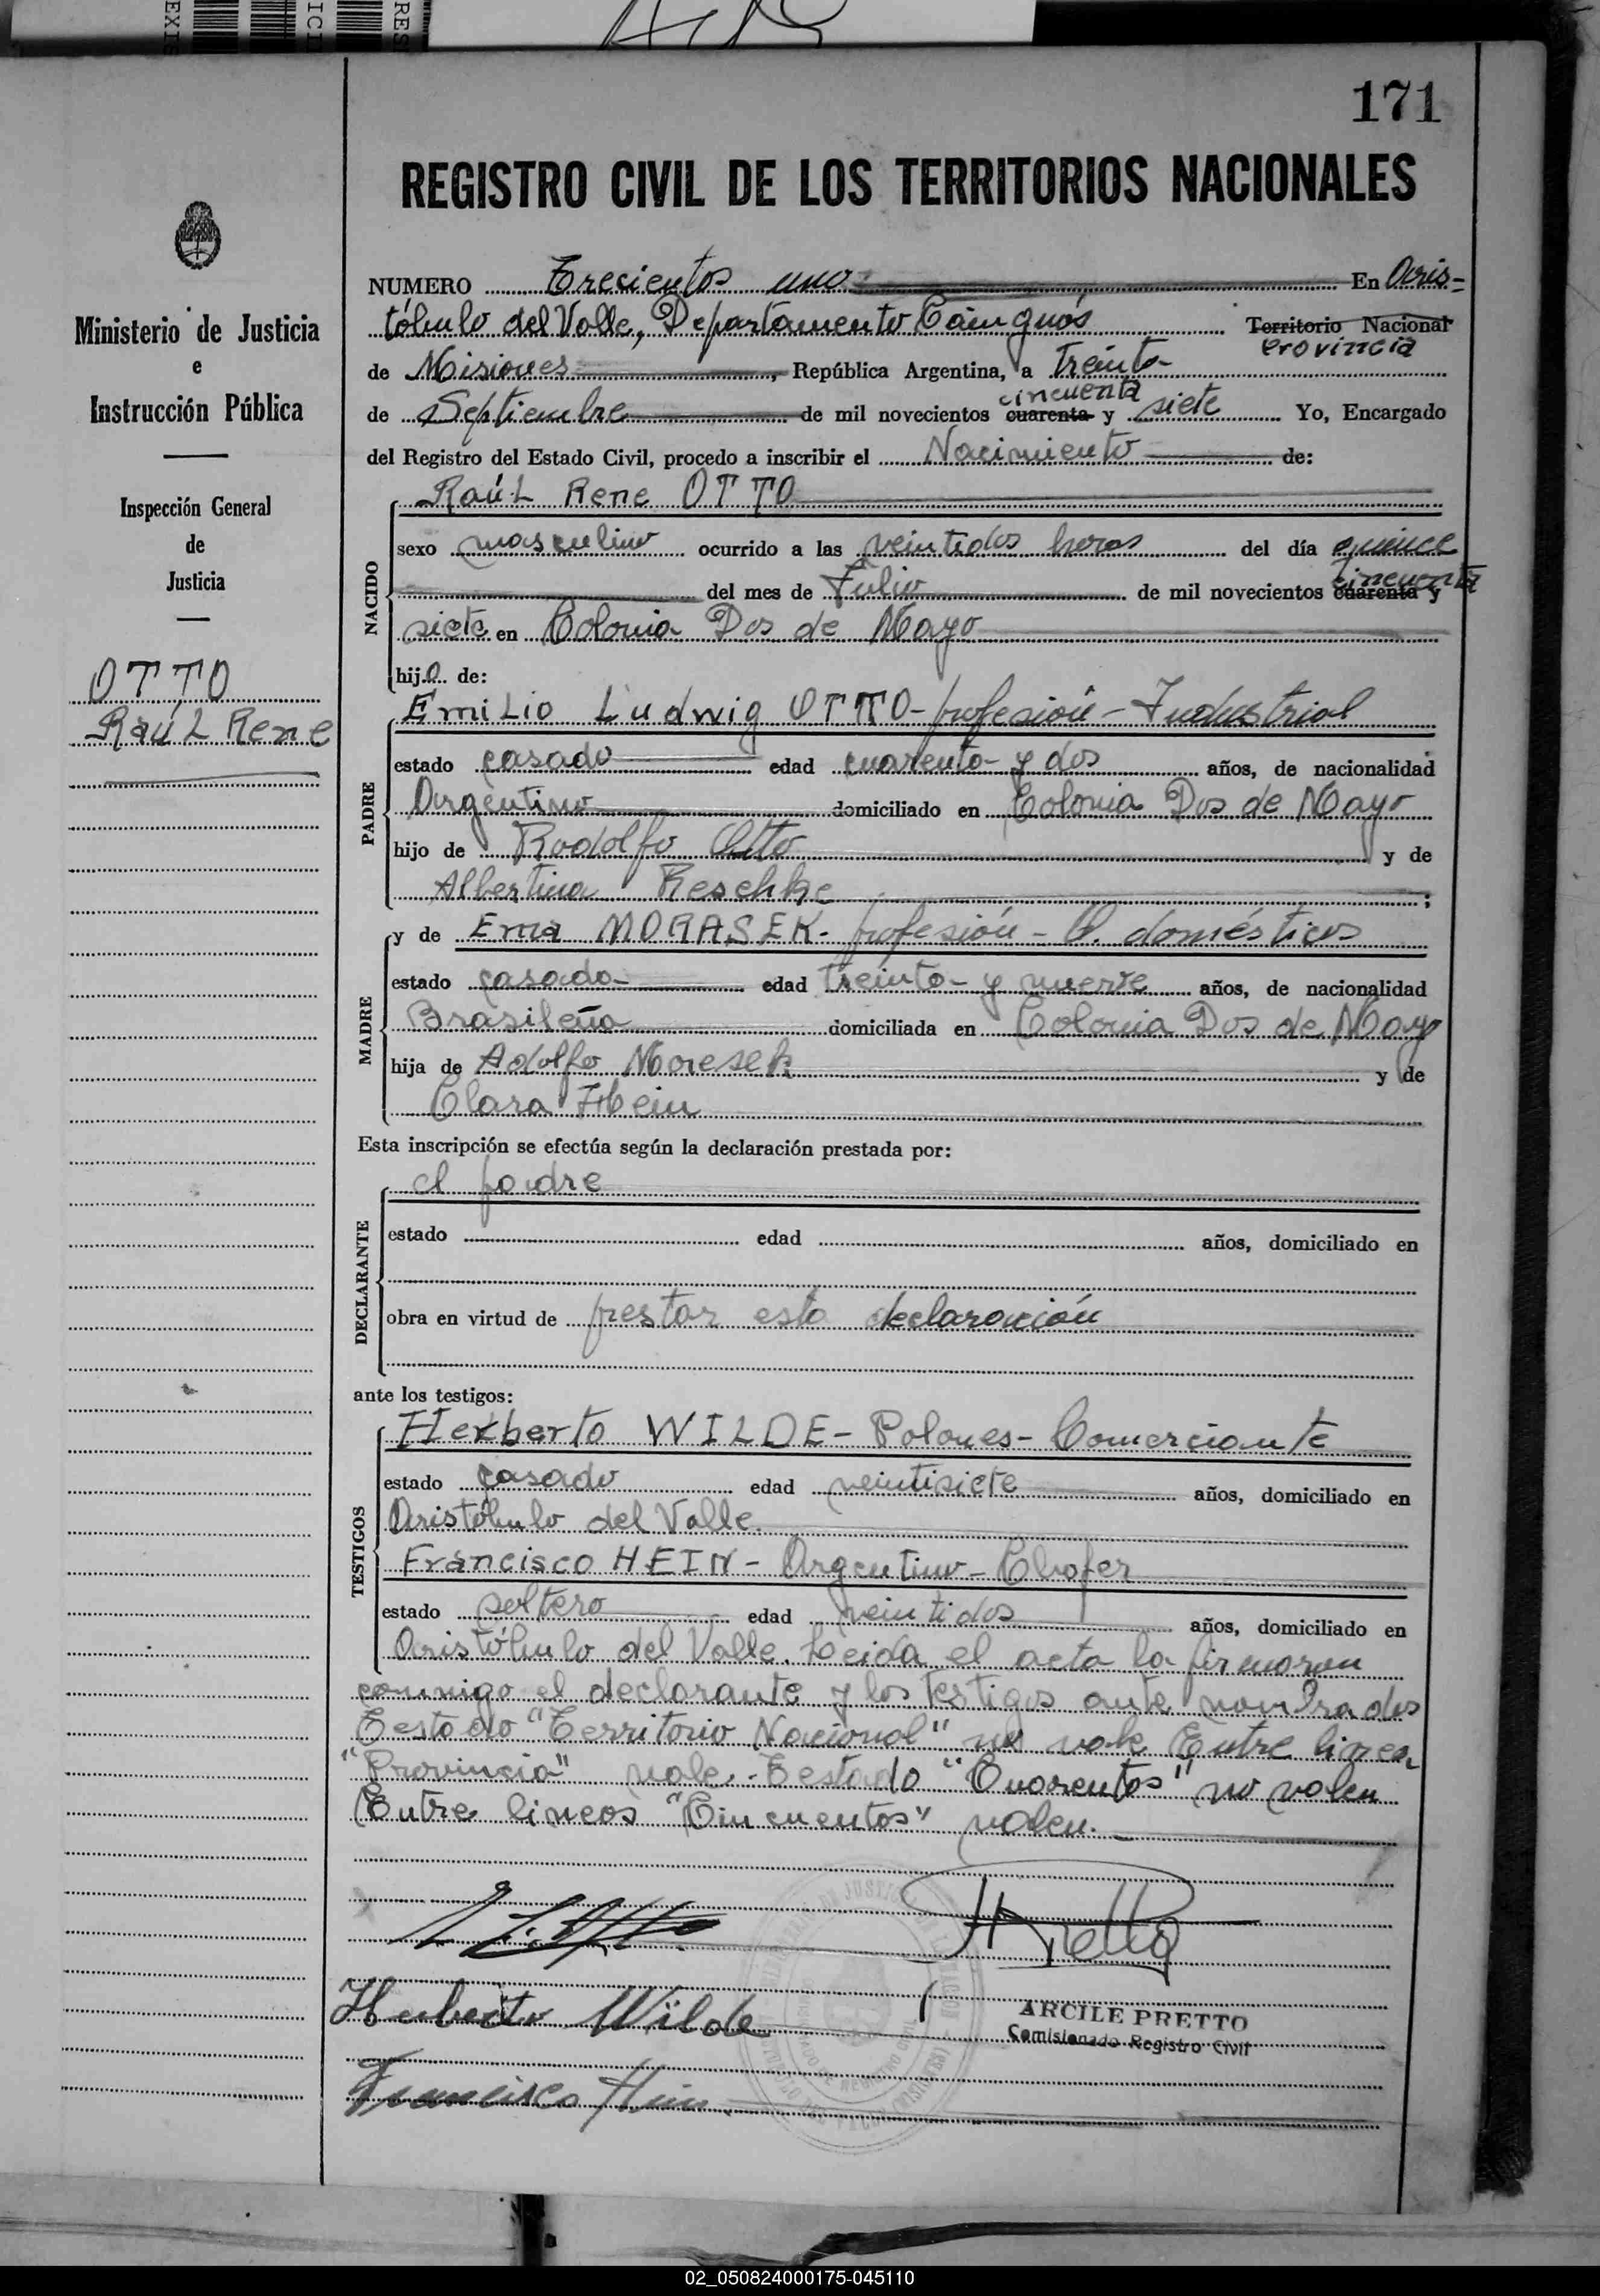 171
REGISTRO CIVIL DE LOS TERRITORIOS NACIONALES
Ministerio de Justicia
e
Instrucción Pública
Inspección General
de
Justicia
OTTO
Raúl Rene
NUMERO Trecientos uno En Aris-
tóbulo del Valle, Departamento Cainguás Territorio Nacional
Provincia
de Misiones, República Argentina, a treinta
cincuenta
de Septiembre de mil novecientos cuarenta y siete Yo, Encargado
del Registro del Estado Civil, procedo a inscribir el Nacimiento de:
NACIDO
Raúl Rene OTTO
sexo masculino ocurrido a las veintidos horas del día quince
cincuenta
del mes de Julio de mil novecientos cuarenta y
siete en Colonia Dos de Mayo
hijo de:
PADRE
Emilio Ludwig OTTO - profesión - Industrial
estado casado edad cuarenta y dos años, de nacionalidad
Argentino domiciliado en Colonia Dos de Mayo
hijo de Rodolfo Otto y de
Albertina Reschke;
MADRE
y de Ema MORASEK. profesión - Q. domésticos
estado casada edad treinta y nueve años, de nacionalidad
Brasileña domiciliada en Colonia Dos de Mayo
hija de Adolfo Moresek y de
Clara Hein
Esta inscripción se efectúa según la declaración prestada por:
DECLARANTE
el padre
estado edad años, domiciliado en
obra en virtud de prestar esta declaración
ante los testigos:
TESTIGOS
Herberto WILDE - Polones - Comerciante
estado casado edad veintisiete años, domiciliado en
Aristóbulo del Valle.
Francisco HEIN - Argentino - Chofer
estado soltero edad veintidos años, domiciliado en
Aristóbulo del Valle. Leida el acta la firmaron
conmigo el declarante y los testigos ante nombrados
Testado "Territorio Nacional" no vale Entre linea
"Provincia" vale. Testado "Cuarentas" no valen
Entre lineas "Cincuentas" valen.
HPretto
Herberto Wilde
ARCILE PRETTO
Comisionado Registro Civil
Francisco Hein
02_050824000175-045110